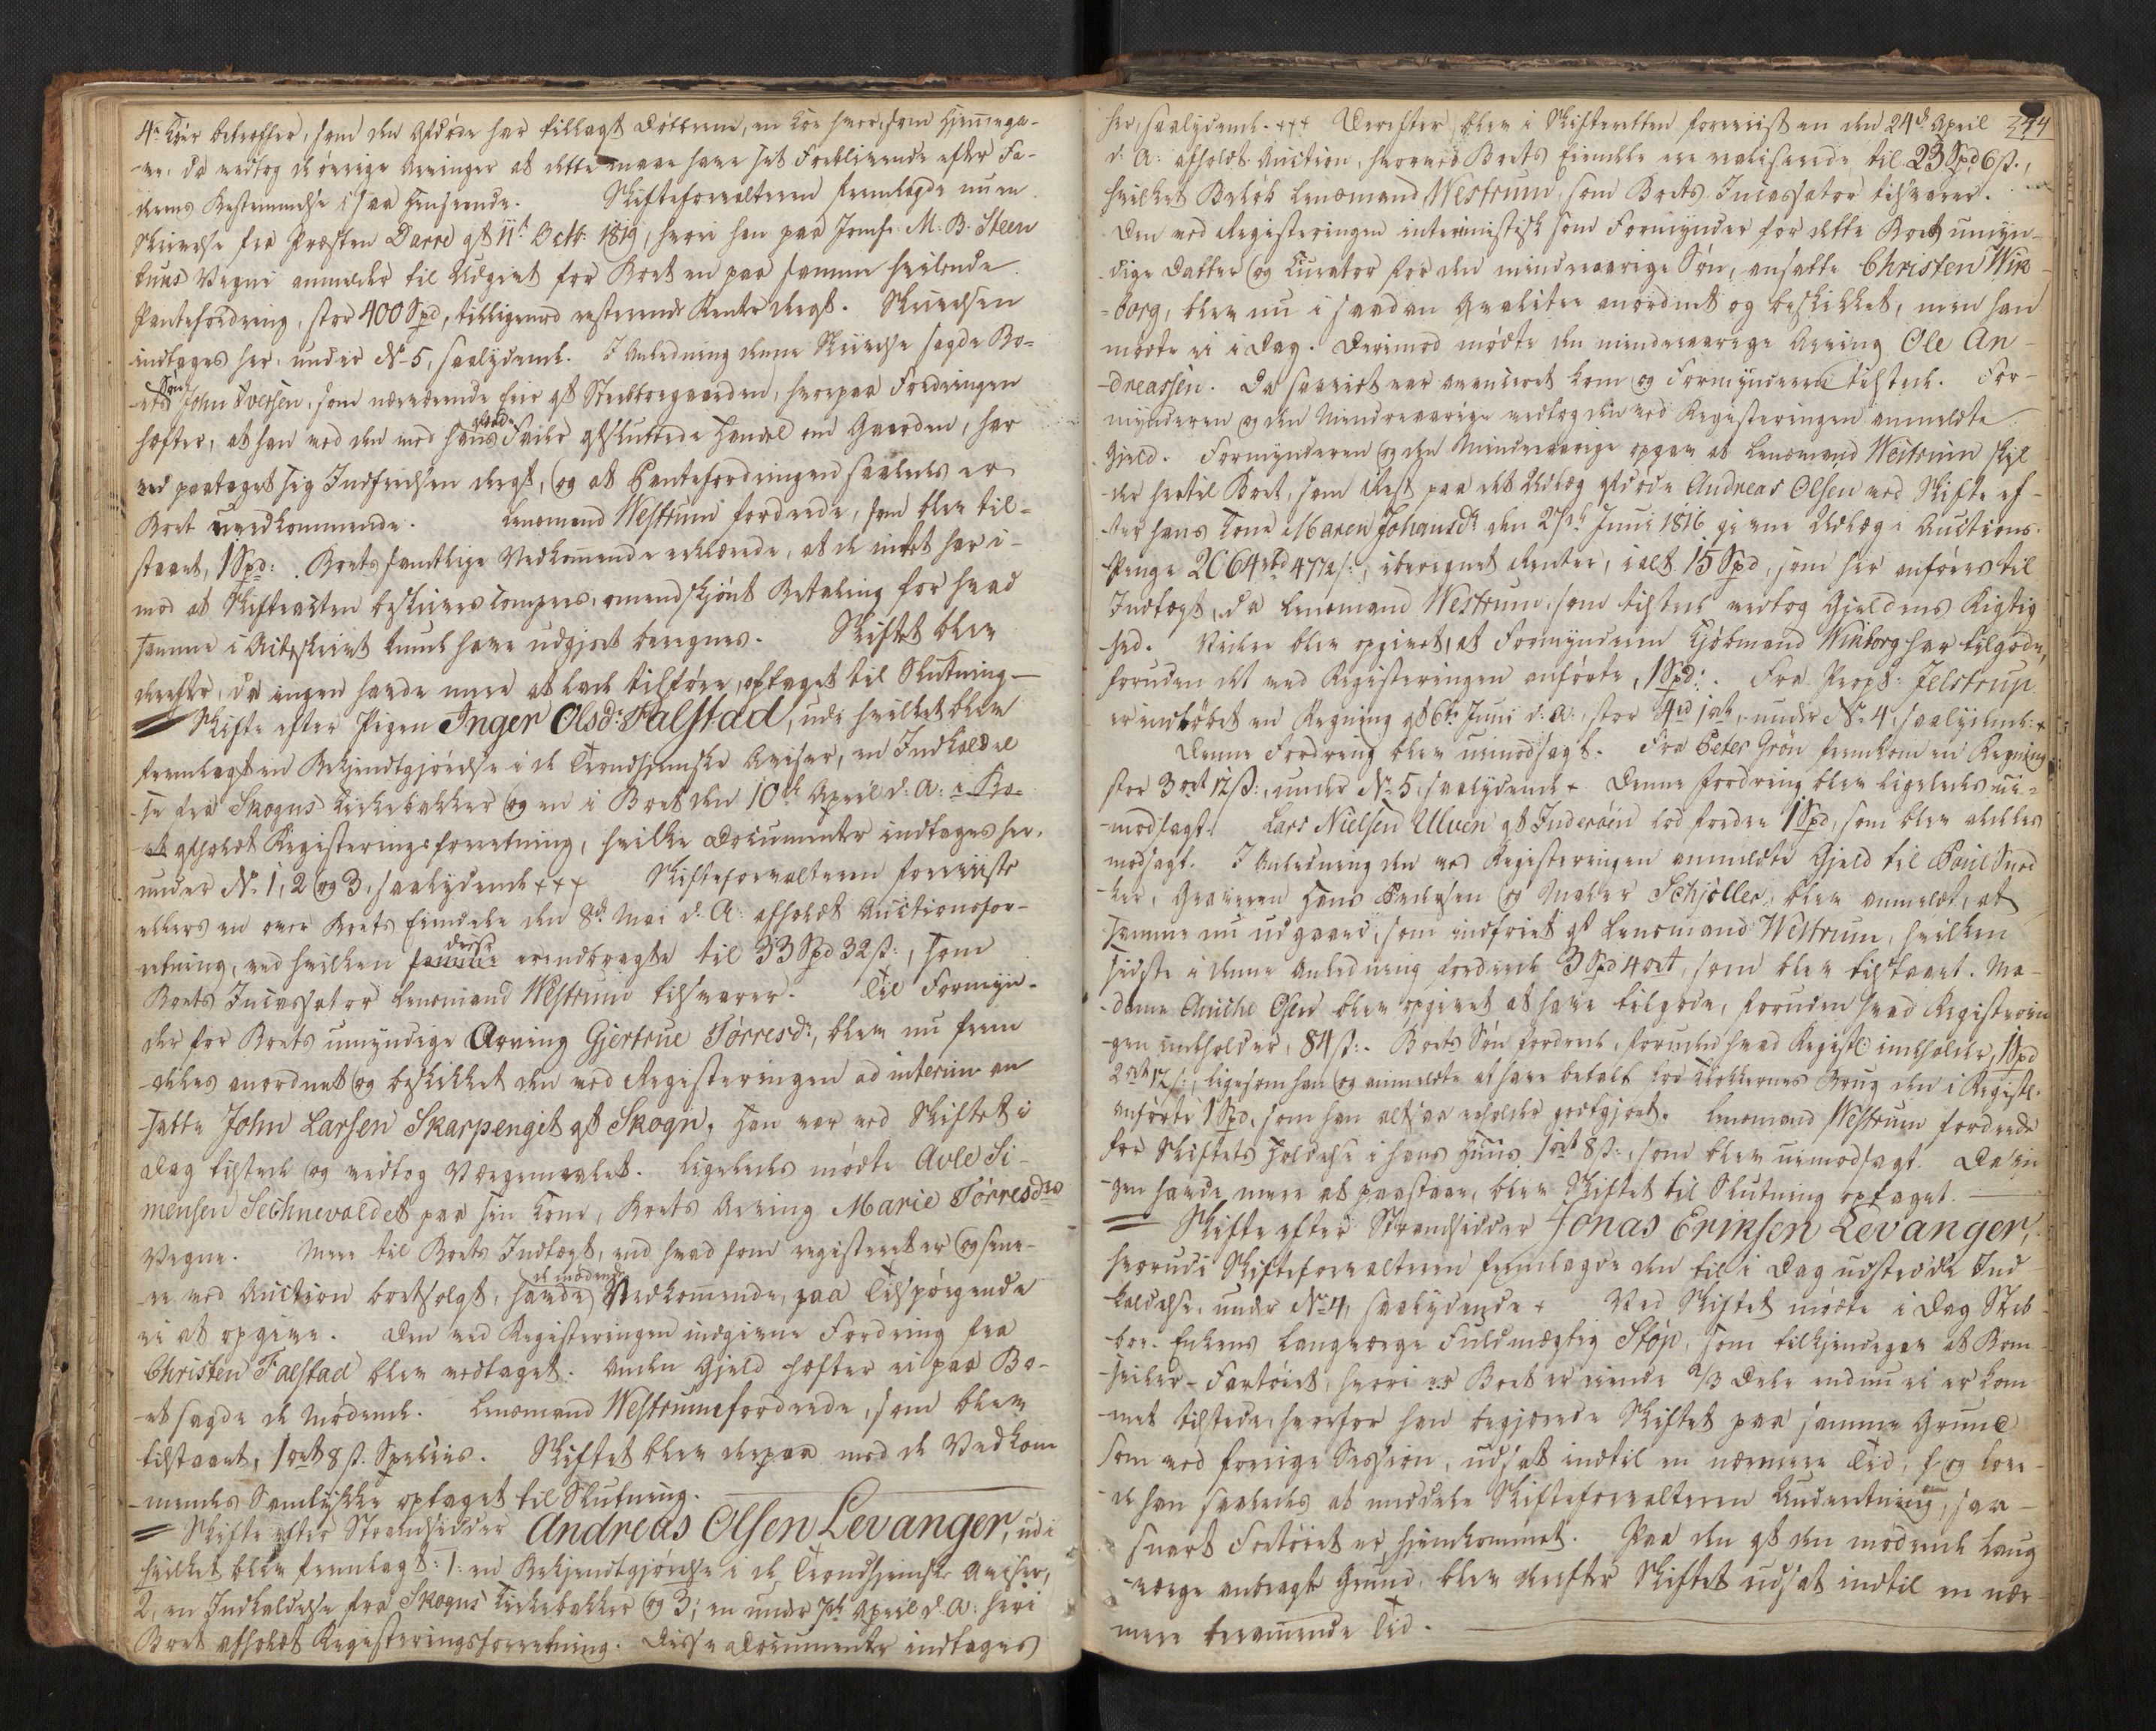 4re Kiör betræffer, som den Afdøde har tillagt Döttrene, en Koe hver, som Hjemmega-
-ve, da vedtog de øvrige Arvinger at dette maae have sit Forblivende efter Fa-
derens Bestemmelse i saa Henseende. Skifteforvalteren fremlagde nu en
Skrivelse fra Præsten Darre af 11te Octb: 1819, hvori han paa Jomfr: M. B. Steen
buks Vegne anmelder til Udgivt for Boet en paa samme heftende
Pantefordring, stor 400 Spd, tilligemed resterende Renter deraf. Skrivelsen
indtages her under No 5, saalydende. I Anledning denne Skrivelse sagde Bo-
ets Søn John Iversen, som nærværende Eier af Stervboegaarden, hvorpaa Fordringen
hæfter, at han ved den med hans afdøde Fader afsluttede Handel om Gaarden, har
ved paataget sig Indfrielsen deraf, og at Pantefordringen saaledes er
Boet uvedkommende. Lensmand Westrum fordrede, som blev til-
staaet, 1 Spd: . Boets samtlige Vedkommende erklærede, at de intet har i-
mod at Skifteacten beskrives compres, omendskjönt Betaling for hvad
samme i Vitskrivt kunde have udgjort beregnes. Skiftet blev
derefter, da ingen havde mere at lade tilføre, optaget til Slutning —
= Skifte efter Pigen Inger Olsdr Falstad, udi hvilket blev
fremlagt en Bekjendtgjørelse i de Trondhjemske Aviser, en Indkaldel
se fra Skogns Kirkebakke og en i Boet den 10de April d: A: i Bo-
et afholdt Registeringsforretning, hvilke Documenter indtages her
under No 1, 2 og 3, saalydende +++ Skifteforvalteren foreviiste
ellers en over Boets Eiendele den 8de Mai d: A: afholdt Auctionsfor-
retning, ved hvilken samme disse er indbragte til 33 Spd 32 s:, som
Boets Incassator Lensmand Westrum tilsvarer. Til Formyn-
der for Boets umyndige Arving Gjertrue Törresdr, blev nu frem
deles anordnet og beskikket den ved Registeringen ad interim an
satte John Larsen Skarpenget af Skogn, han var ved Skiftet i
Dag tilstede og vedtog Værgemaalet. Ligeledes mødte Avle Si-
mensen Sechnevaldet paa sin Kone, Boets Arving Marie Törresdrs
Vegne. Mere til Boets Indtægt, end hvad som registeret er og sene-
re ved Auction bortsolgt, havde de mødende Vedkommende, paa Tilspørgende
ei at opgive. Den ved Registeringen indgivne Fordring fra
Christen Falstad blev vedtaget. Anden Gjeld hæfter ei paa Bo-
et sagde de Mødende. Lensmand Westrum fordrede, som blev
tilstaaet, 1 ort 8 s. Species. Skiftet blev derpaa med de Vedkom
mendes Samtykke optaget til Slutning. —
= Skifte efter Strandsidder Andreas Olsen Levanger, udi
hvilket blev fremlagt: 1: en Bekjendtgjørelse i de Trondhjemske Aviser,
2, en Indkaldelse fra Skogns Kirkebakke og 3; en under 7de April d: A: heri
Boet afholdt Registeringsforretning. Disse Documenter indtages
her, saalydende. +++ Derefter blev i Skifteretten foreviist en den 24de April 244
d: A: afholdt Auction, hvorved Boets Eiendele ere realiserede til 23 Spd 6 s.,
hvilket Beløb Lensmand Westrum som Boets Incassator tilsvarer.
Den ved Registeringen interimistisk som Formynder for dette Boets umyn-
dige Datter og Curator for den mindreaarige Søn, ansatte Christen Win
borg, blev nu i saadan Qvalitee anordnet og beskikket, men han
mødte ei i Dag. Derimod mødte den mindreaarige Arving Ole An-
-dreassen. Da saavidt var avanceret kom og Formynderen tilstede. For-
mynderen og den Mindreaarige vedtog den ved Registeringen anmeldte
Gjeld. Formynderen og den Mindreaarige opgav at Lensmand Westrum skyl
der hertil Boet, som Rest paa det Udlæg afdøde Andreas Olsen ved Skifte ef-
ter hans Kone Maren Johansdr den 27de Juni 1816 givne Udlæg i Auctions-
Penge 2064 rbd 47½ s:, iberegnet Renter, i alt 15 Spd, som her anføres til
Indtægt, da Lensmand Westrum, som tilstede vedtog Gjeldens Rigtig
hed. Videre blev opgivet, at Formynderen Kjöbmand Winborg har tilgode,
foruden det ved Registeringen anførte, 1 Spd: . Fra Prop: Jelstrup
er indløbet en Regning af 6te Juni d: A:, stor 4 rd 1 ort, under No 4, saalydende: +
Denne Fordring blev uimodsagt. Fra Peter Grön fremkom en Regning
stor 3 ort 12 s:, under No 5, saalydende + Denne Fordring blev ligeledes ui-
modsagt. Lars Nielsen Ulven af Inderøen lod fordre 1 Spd, som blev aldeles
modsagt. I Anledning den ved Registeringen anmeldte Gjeld til Paul Sned
ker, Graveren Hans Pedersen og Maler Schjöller, blev anmeldt, at
samme nu udgaaer, som indfriet af Lensmand Westrum, hvilken
sidste i denne Anledning fordrede 3 Spd 4 ort, som blev tilstaaet. Ma-
dame Anicke Olsen blev opgivet at have tilgode, foruden hvad Registerin
gen indeholder, 84 s:. Boets Søn fordrede, foruden hvad Registr: indeholder, 1 Spd
2 ort 12 s:, ligesom han og anmeldte at have betalt for Klokkernes Brug den i Registr.
anførte 1 Spd, som han altsaa erholder godtgjort. Lensmand Westrum fordrede
for Skiftets Holdelse i hans Huus 1 ort 8 s:, som blev uimodsagt. Da in
gen havde mere at paastaae, blev Skiftet til Slutning optaget. —
= Skifte efter Strandsidder Jonas Eriksen Levanger,
hvorudi Skifteforvalteren fremlagde den til i Dag udstedde Ind-
kaldelse, under No 4, saalydende + Ved Skiftet mødte i Dag Sterv-
boe-Enkens Laugværge Fuldmægtig Støp, som tilkjendegav at Bom
seiler-Fartøiet, hvori er Boet er eiende 2/3 Dele endnu ei er kom-
met tilstede, hvorfor han begjærede Skiftet paa samme Grund
som ved forrige Session, udsat indtil en nærmere Tid, og love-
de han saaledes at meddele Skifteforvalteren Underretning, saa-
snart Fartøiet er hjemkommet. Paa den af den mødende Laug
værge anbragte Grund, blev derefter Skiftet udsat indtil en nær
mere berammende Tid. —